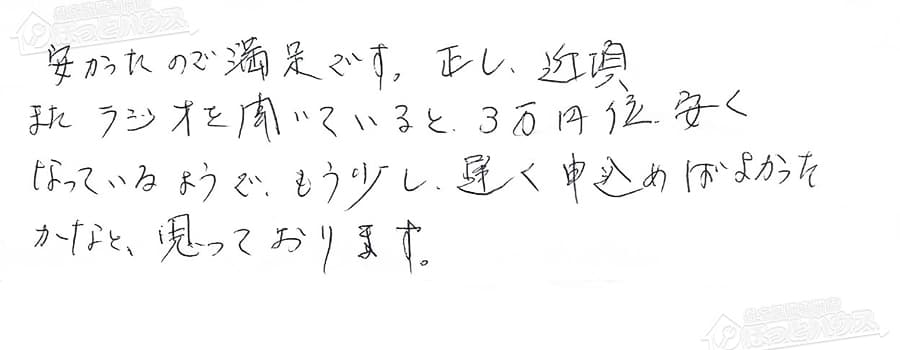 ほっとハウス
安かったので満足です。正し、近頃
またラジオを聞いていると、3万円位、安く
なっているようで、もう少し、早く申込めばよかった
かなと、思っております。
ほっとハウス